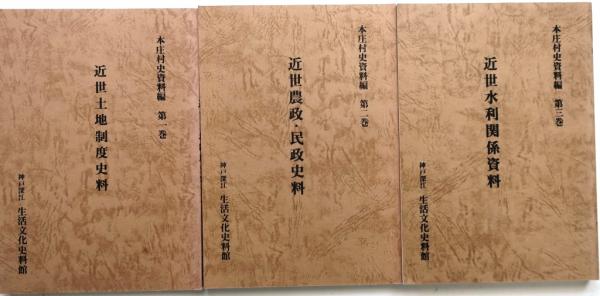 本庄村史資料編　第一巻
近世土地制度史料
神戸深江　生活文化史料館
本庄村史資料編　第二巻
近世農政・民政史料
神戸深江　生活文化史料館
本庄村史資料編　第三巻
近世水利関係資料
神戸深江　生活文化史料館